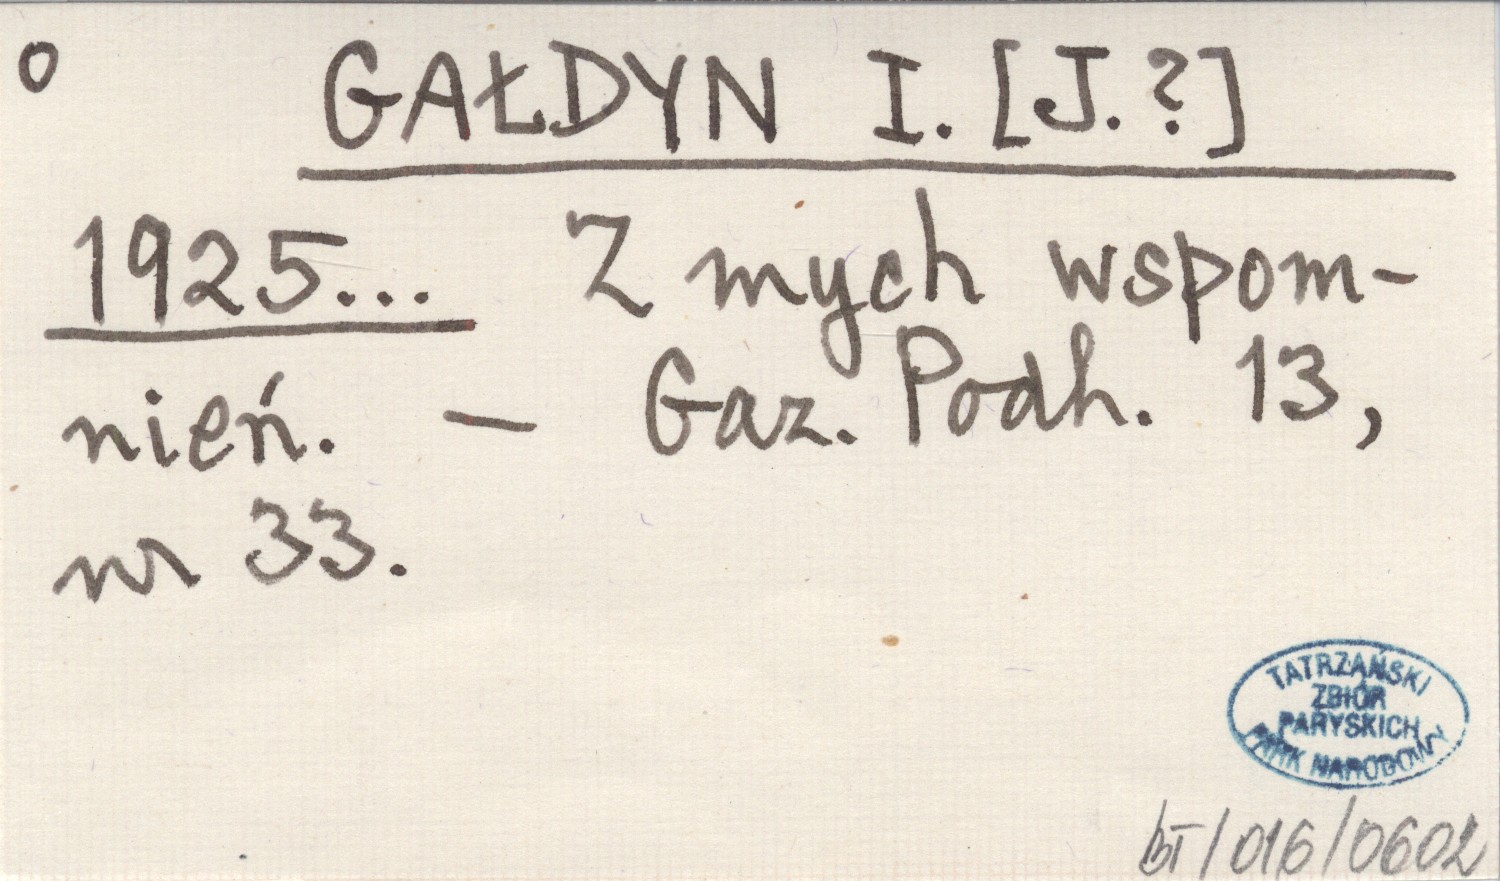 o GAŁDYN I. [J.?]
1925... Z mych wspom-
nień. — Gaz. Podh. 13,
nr 33.
TATRZAŃSKI
ZBIÓR
PARYSKICH
PARK NARODOWY
bT/016/0602